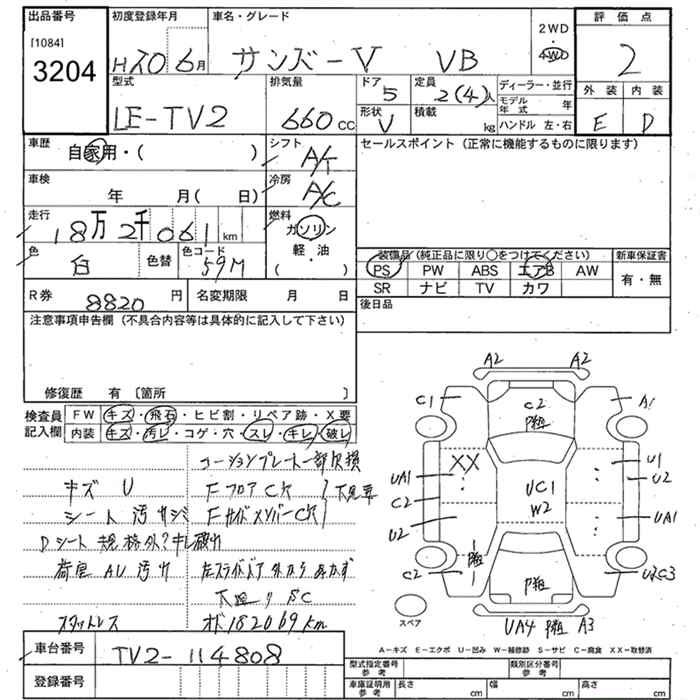 出品番号
[1084]
3204
初度登録年月
H20 6月
車名・グレード
サンバーV VB
2WD
4WD
評価点
2
外装 内装
E D
型式
LE-TV2
排気量
660 cc
ドア
5
形状
V
定員
2(4)人
積載
kg
ディーラー・並行
モデル年式 年
ハンドル 左・右
車歴
自家用・( )
車検
年 月( 日)
走行
18万2千061 km
色
白
色替
色コード
59M
シフト
A/T
冷房
A/C
燃料
ガソリン
軽・油
( )
セールスポイント (正常に機能するものに限ります)
装備品 (純正品に限り○をつけてください)
PS PW ABS エアB AW
SR ナビ TV カワ
新車保証書
有・無
後日品
R券
8820 円
名変期限 月 日
注意事項申告欄 (不具合内容等は具体的に記入して下さい)
修復歴 有 〔箇所 〕
検査員記入欄
FW キズ・飛石・ヒビ割・リペア跡・X要
内装 キズ・汚レ・コゲ・穴・スレ・キレ・破レ
コーションプレート一部欠損
キズ U
Fフロア C穴
シート 汚サジミ
Fサイドメンバー C穴
Dシート 規格外? キレ破れ
荷室 AU 汚れ
左スライドドア 外から あかず
下廻り SC
スタットレス
オド182069km
A2 A2
C1 A1
C2
P粗
XX
UA1
C2
U2
U1
U2
UA1
UC1
W2
C2
P粗
P粗
U2C3
UA4 P粗 A3
スペア
車台番号
TV2-114808
登録番号
A-キズ E-エクボ U-凹み W-補修跡 S-サビ C-腐食 XX-取替済
型式指定番号 参考
類別区分番号 参考
車庫証明用 参考
長さ cm
幅 cm
高さ cm